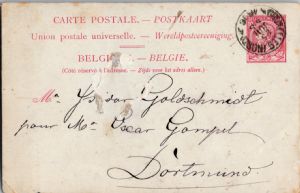 CARTE POSTALE. — POSTKAART
Union postale universelle. — Wereldpostvereeniging.
BELGIQUE. — BELGIË.
(Côté réservé à l'adresse. — Zijde voor het adres alleen.)
Mr Isidor Goldschmidt
pour Mr Oscar Gompel
Dortmund